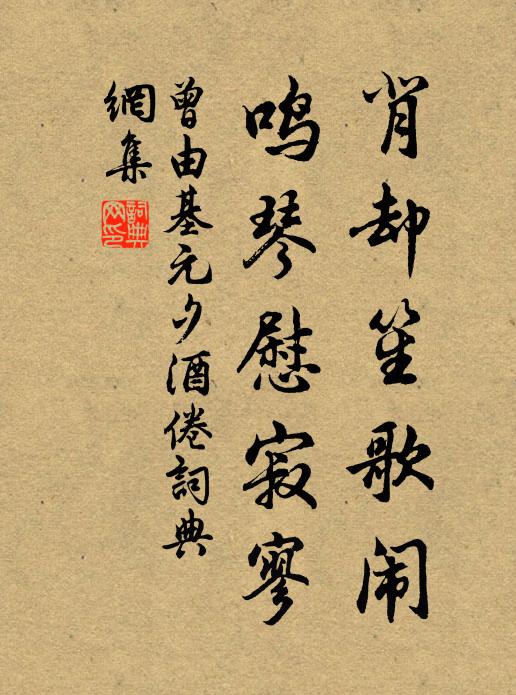 肖却笙歌闹
鸣琴慰寂寥
曾由基元夕酒倦詞典
網集
詞典
网印